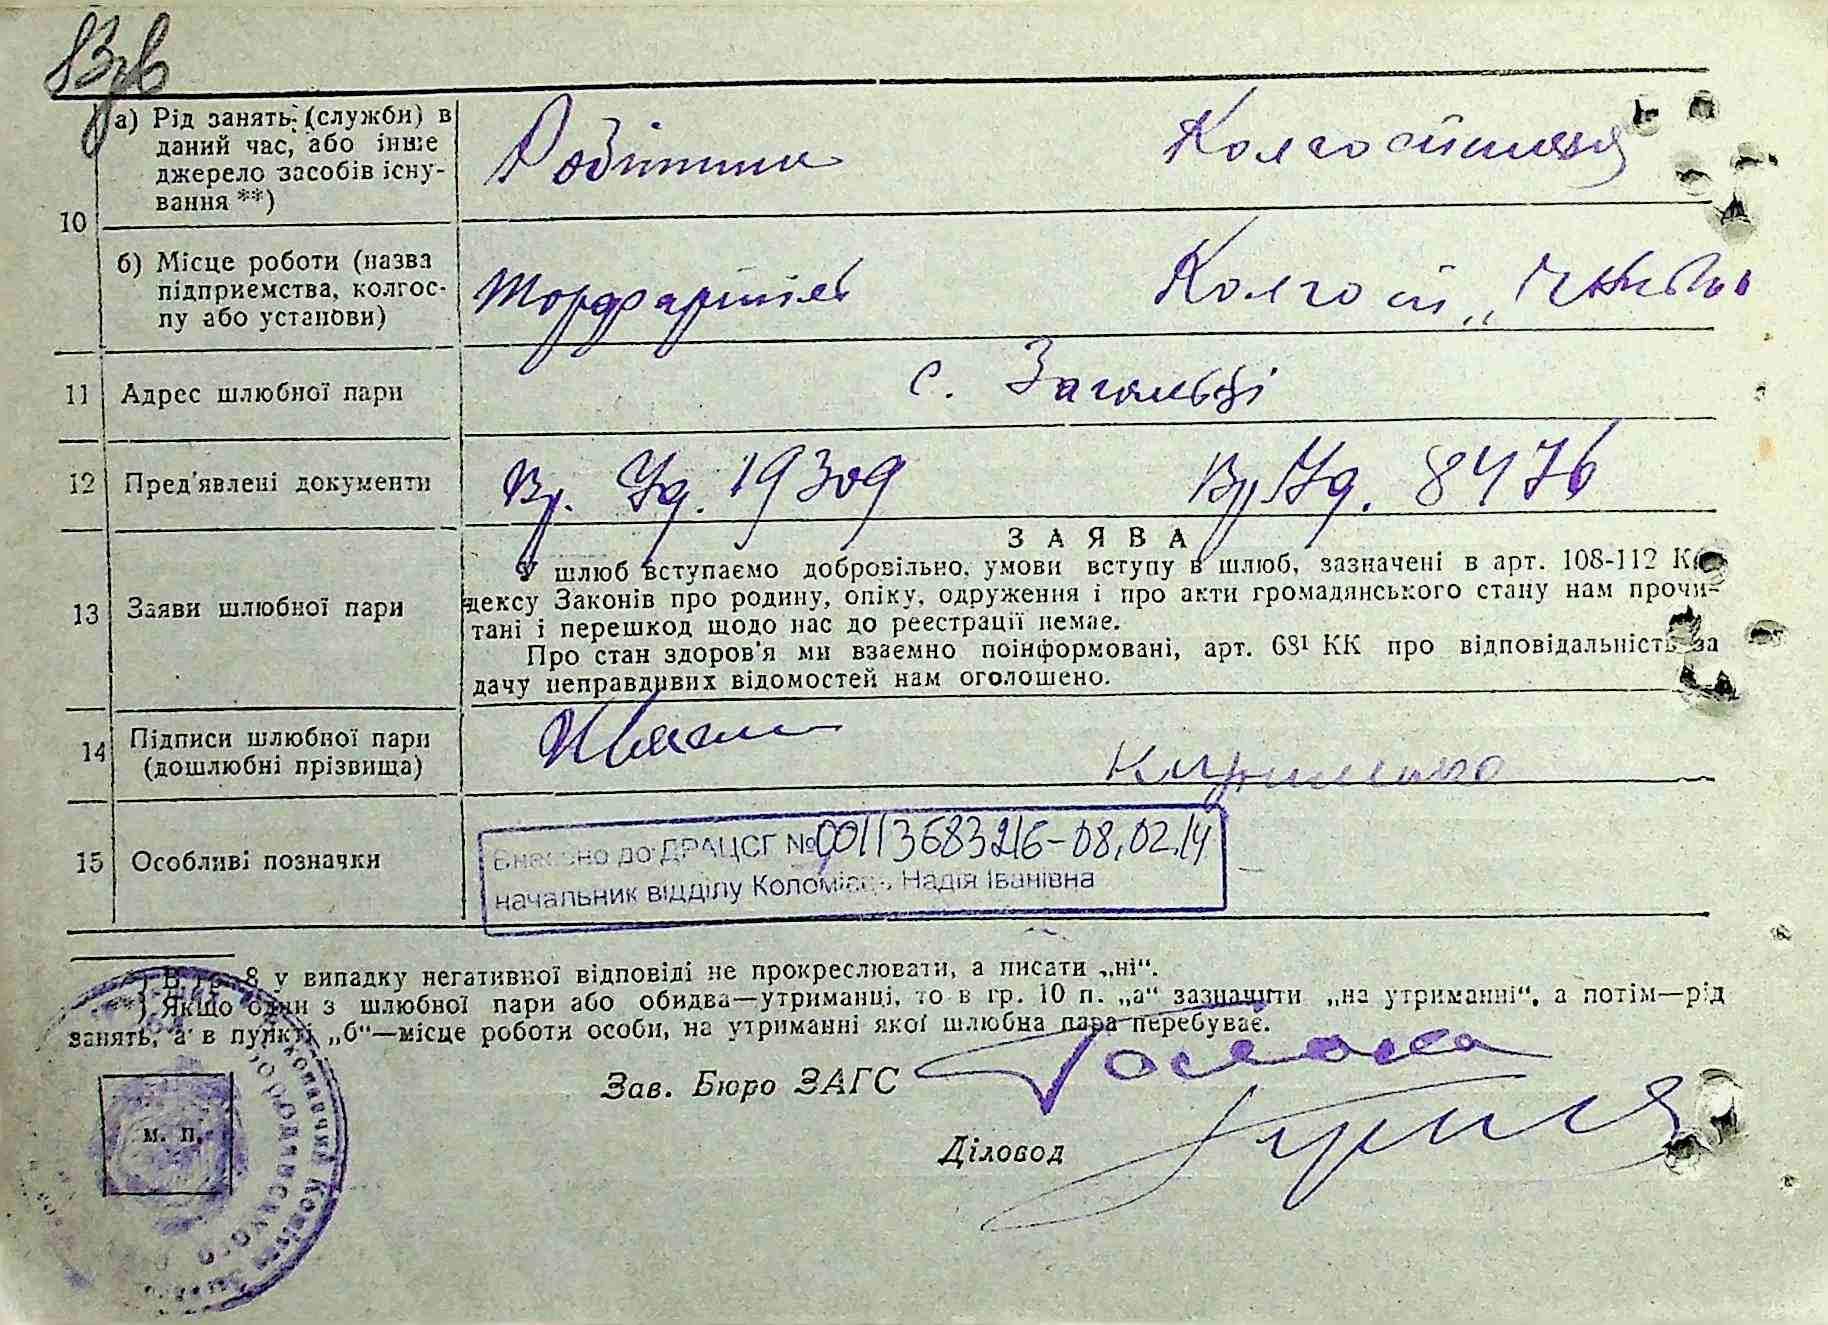 83зв
а) Рід занять (служби) в
даний час, або інше
джерело засобів існу-
вання **)
Робітник
Колгоспниця
10
б) Місце роботи (назва
підприємства, колгос-
пу або установи)
Торфартіль
Колгосп „
11 Адрес шлюбної пари
с. Загальці
12 Пред'явлені документи
Вр. Уд. 19309
Вр Уд. 8476
ЗАЯВА
У шлюб вступаємо добровільно, умови вступу в шлюб, зазначені в арт. 108-112 Ко-
дексу Законів про родину, опіку, одруження і про акти громадянського стану нам прочи-
тані і перешкод щодо нас до реєстрації немає.
Про стан здоров'я ми взаємно поінформовані, арт. 68¹ КК про відповідальність за
дачу неправдивих відомостей нам оголошено.
13 Заяви шлюбної пари
14 Підписи шлюбної пари
(дошлюбні прізвища)
Кириленко
15 Особливі позначки
Внесено до ДРАЦСГ №00113683216-08.02.14
начальник відділу Коломієць Надія Іванівна
*) В гр. 8 у випадку негативної відповіді не прокреслювати, а писати „ні“.
**) Якщо один з шлюбної пари або обидва—утриманці, то в гр. 10 п. „а“ зазначити „на утриманні“, а потім—рід
занять, а в пункті „б“—місце роботи особи, на утриманні якої шлюбна пара перебуває.
Зав. Бюро ЗАГС
Діловод
м. п.